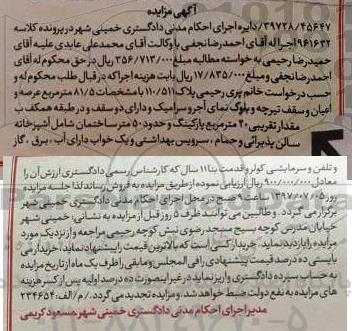 آگهی مزایده
۳۹۷۲۸/۴۵۶۴۷ دایره اجرای احکام مدنی دادگستری خمینی شهر در پرونده کلاسه
۹۶۱۶۳۲ اجراله آقای احمدرضا نجفی با وکالت آقای محمدعلی عابدی علیه آقای
حمیدرضا رحیمی به خواسته مطالبه مبلغ ۳۵۶/۷۱۳/۰۰۰ ریال در حق محکوم له آقای
احمدرضا نجفی و مبلغ ۱۷/۸۳۵/۰۰۰ ریال بابت هزینه اجراکه در قبال طلب محکوم له و
حسب درخواست خانم پری رحیمی پلاک ۱۱۰/۵۱۱ با مشخصات ۸۱/۵ مترمربع عرصه و
اعیان و سقف تیرچه و بلوک نمای آجر و سرامیک و دارای دو سقف و در طبقه همکف به
مقدار تقریبی ۲۰ مترمربع پارکینگ و حدود ۵۰ متر ساختمان شامل آشپزخانه
سالن پذیرائی و حمام ، سرویس بهداشتی و یک خواب دارای آب ، برق ، گاز
و تلفن و سرمایشی کولر و قدمت بنا ۱۱ سال که کارشناس رسمی دادگستری ارزش آن را
معادل ۹۰۰/۰۰۰/۰۰۰ ریال ارزیابی نموده از طریق مزایده به فروش رساند لذا جلسه مزایده
روز ۱۳۹۷/۰۷/۰۵ ساعت ۹ صبح در محل اجرای احکام مدنی دادگستری خمینی شهر
برگزار می گردد . و طالبین می توانند ظرف ۵ روز قبل از مزایده به نشانی : خمینی شهر
خیابان مدرس کوچه بسیج مسجد رضوی نبش کوچه رحیمی مراجعه و از نزدیک مورد
مزایده را بازدید نماید. خریدار کسی است که بالاترین قیمت را پیشنهاد نماید، خریدار می
بایستی ده درصد قیمت پیشنهادی را فی المجلس و مابقی را ظرف یک ماه از تاریخ مزایده
به حساب سپرده دادگستری واریز نماید در غیر اینصورت ده درصد اولیه پس از کسر هزینه
های مزایده به نفع دولت ضبط خواهد شد. و مزایده تجدید می گردد. / م الف: ۲۳۴۶۵۴
مدیر اجرای احکام مدنی دادگستری خمینی شهر_مسعود کریمی